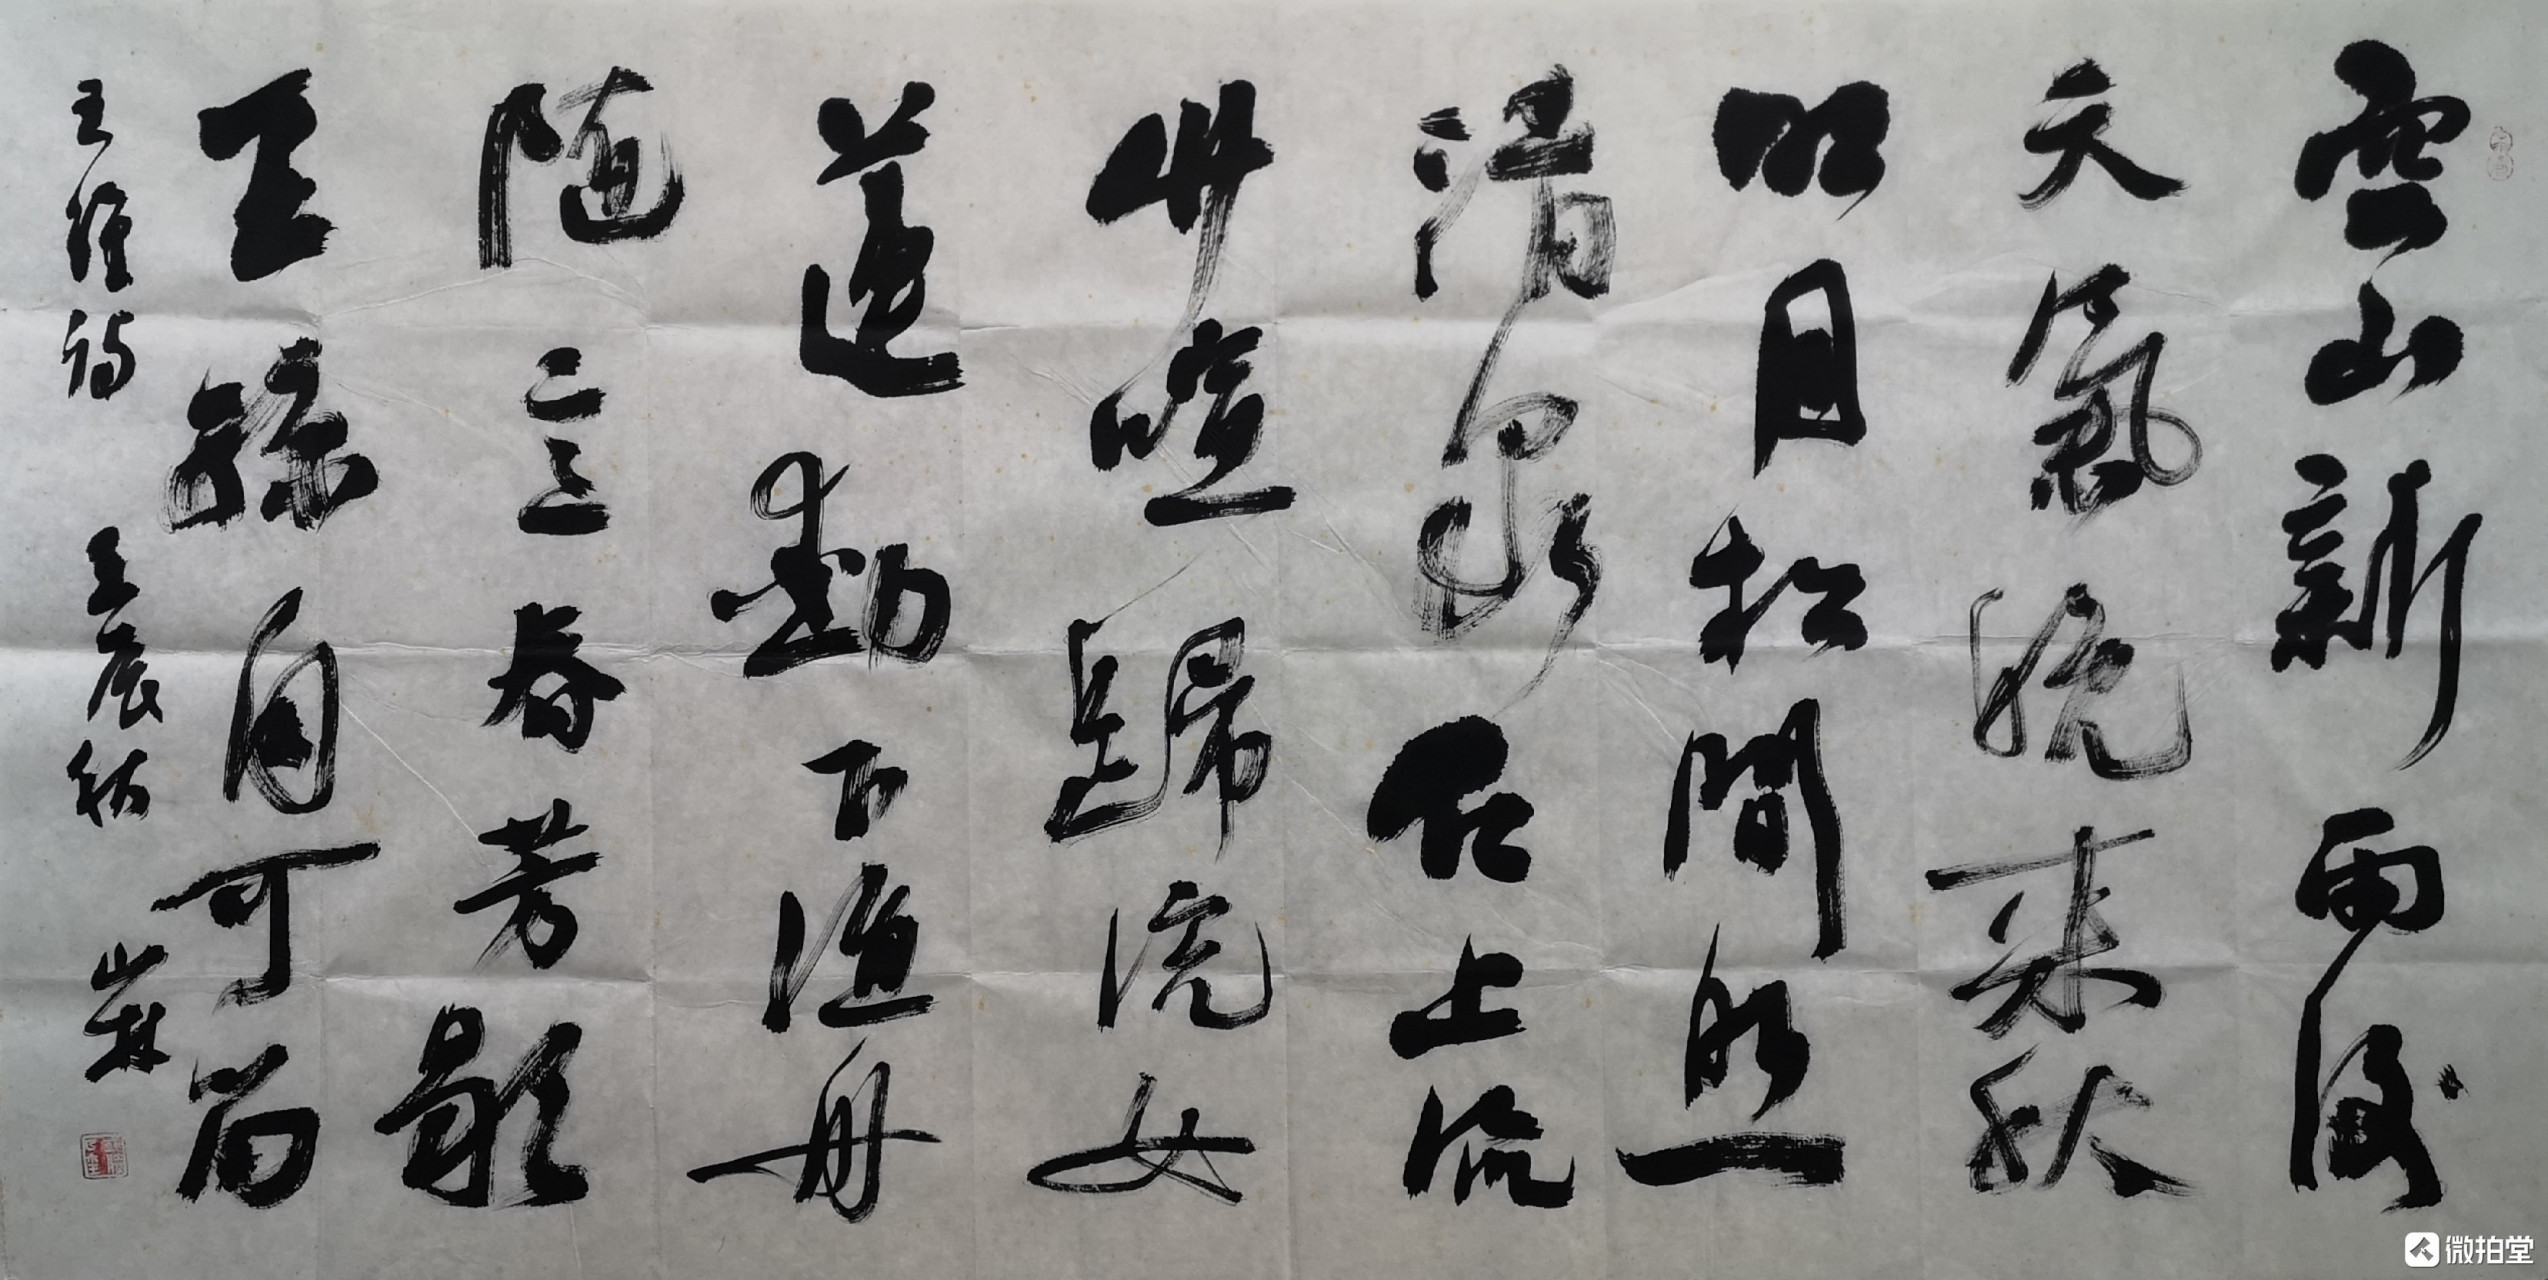 空山新雨後
天氣晚来秋
明月松間照
清泉石上流
竹喧歸浣女
蓮動下漁舟
随意春芳歇
王孫自可留
王維詩 壬辰秋 山林
微拍堂